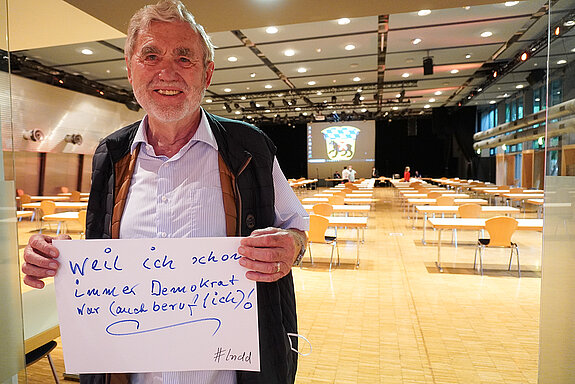 Weil ich schon
immer Demokrat
war (auch beruflich)!
#lndd